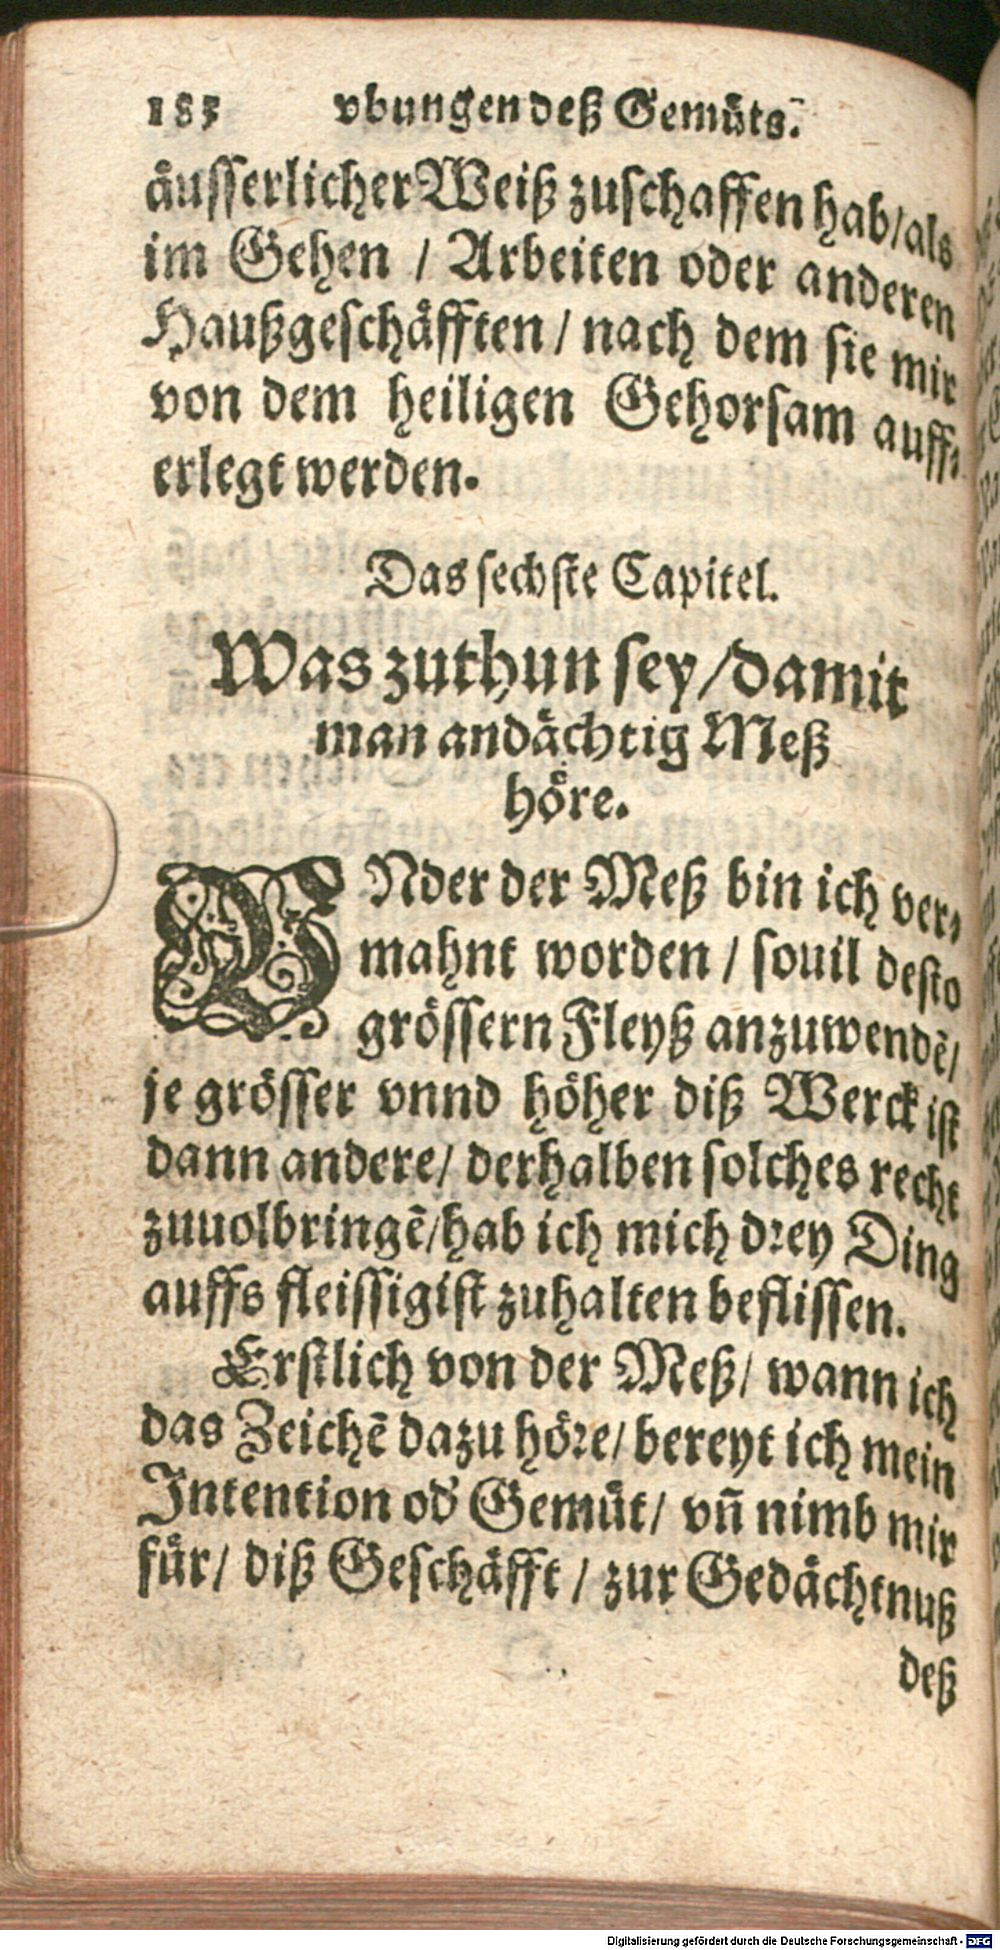 183 vbungen deß Gemüts.
äusserlicher Weiß zuschaffen hab/als
im Gehen / Arbeiten oder anderen
Haußgeschäfften / nach dem sie mir
von dem heiligen Gehorsam auff-
erlegt werden.
Das sechste Capitel.
Was zuthun sey/damit
man andächtig Meß
höre.
VNder der Meß bin ich ver-
mahnt worden / souil desto
grössern Fleyß anzuwendē/
je grösser vnnd höher diß Werck ist
dann andere/ derhalben solches recht
zuuolbringē/hab ich mich drey Ding
auffs fleissigist zuhalten beflissen.
Erstlich von der Meß/ wann ich
das Zeichē dazu höre/ bereyt ich mein
Intention od' Gemüt/ vñ nimb mir
für/ diß Geschäfft / zur Gedächtnuß
deß
Digitalisierung gefördert durch die Deutsche Forschungsgemeinschaft - DFG